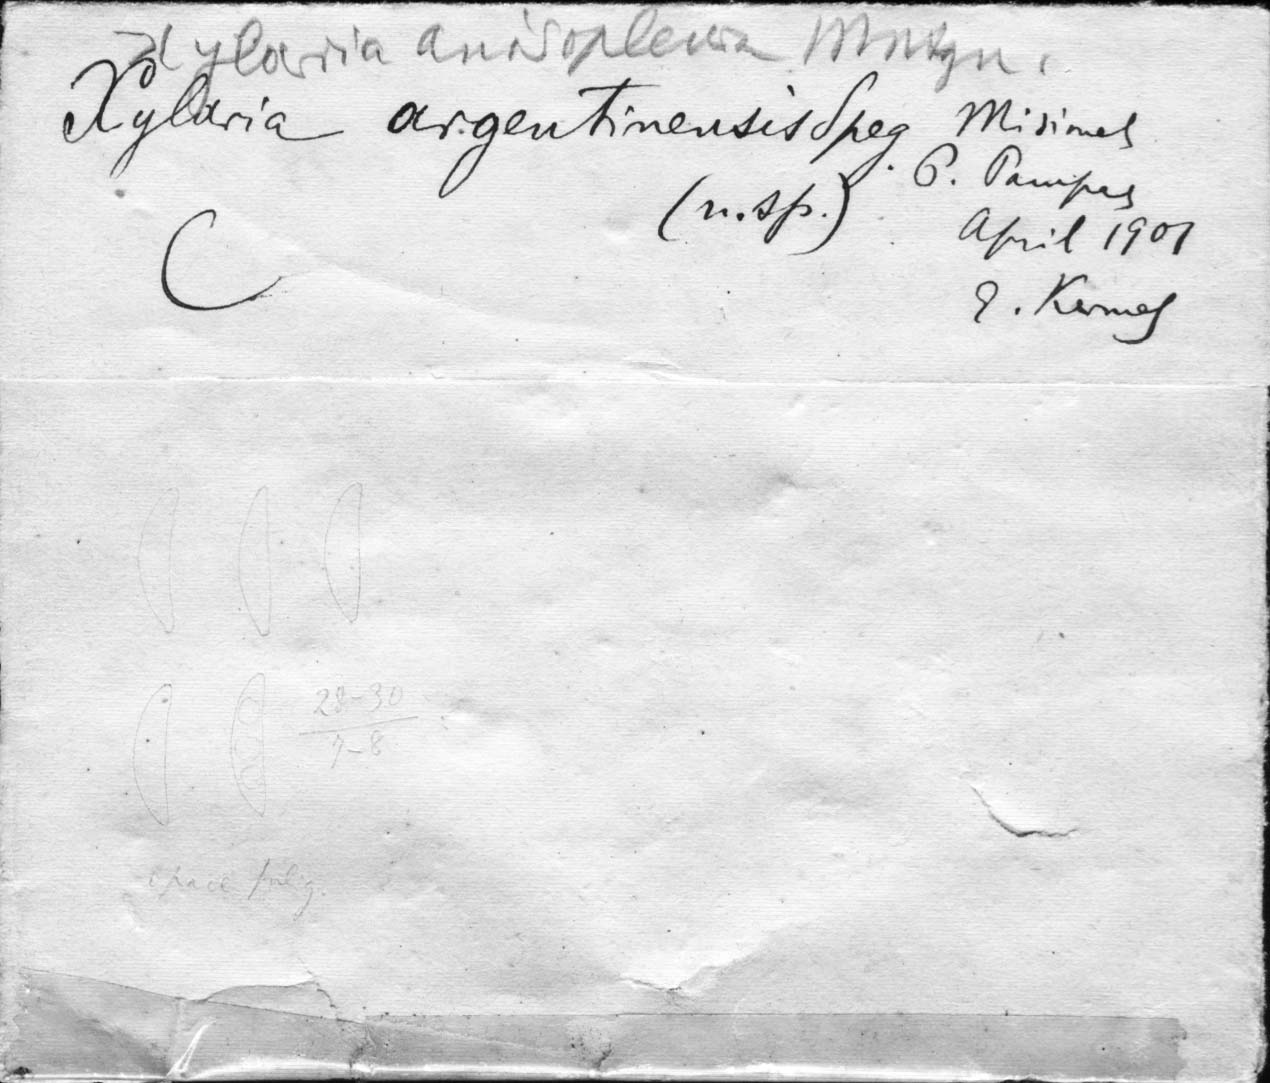 Xylaria anisopleura Montgn.
Xylaria argentinensis Speg
(n.sp.)
Misiones
P. Pampas
April 1901
C
28-30
7-8
opace fulig.